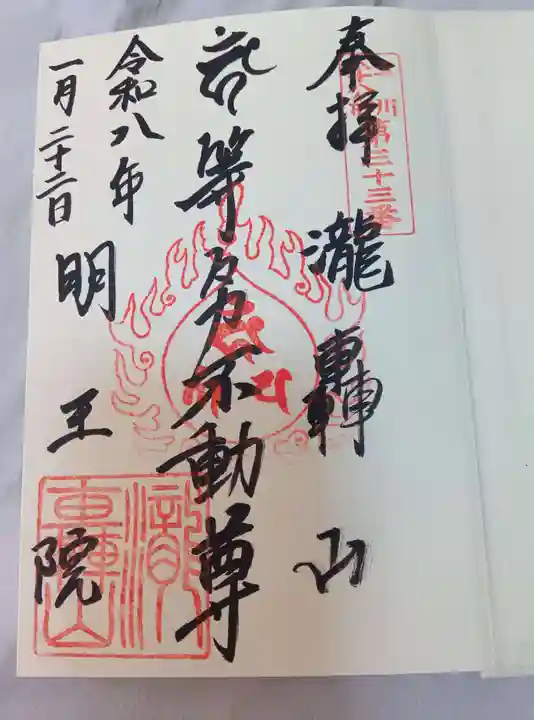 奉拝 瀧轟山
第三十三番
等々力不動尊
令和八年
一月二十二日
明王院
瀧轟山